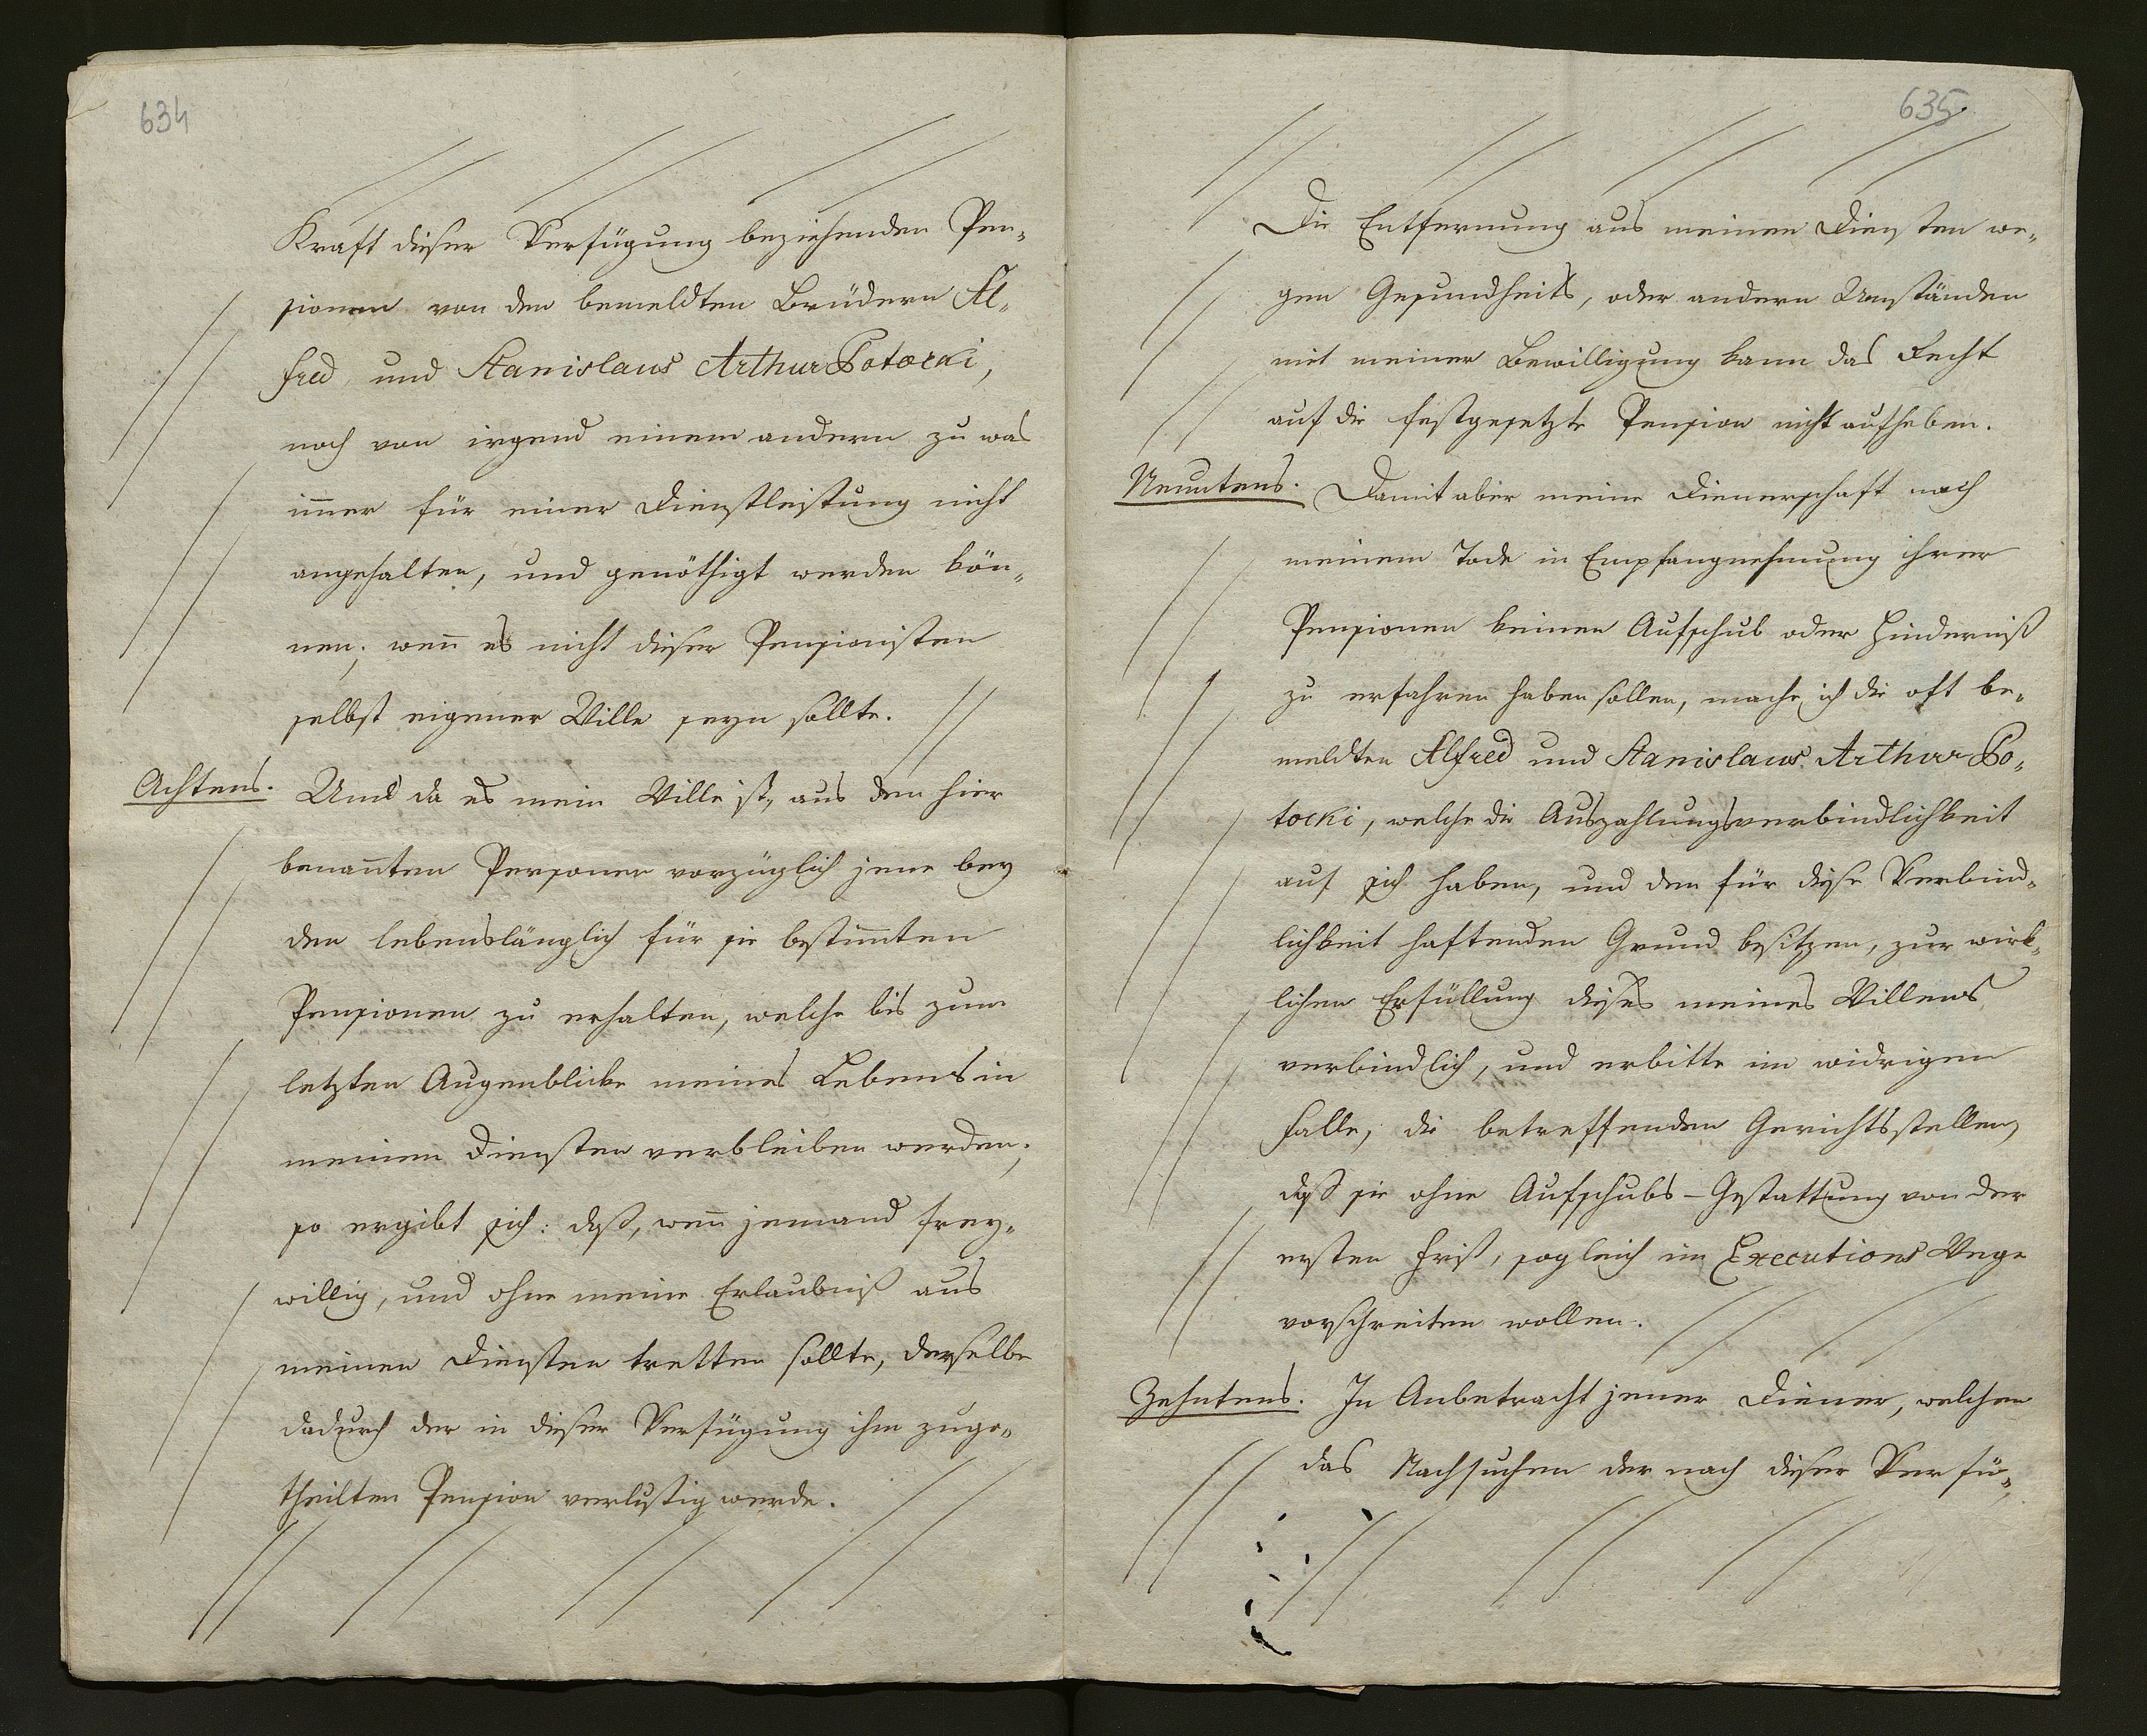 634
Kraft dieser Verfügung beziehenden Pen„
sionen von den bemeldten Brüdern Al„
fred, und Stanislaus Arthur Potocki,
noch von irgend einem andern zu was
im̅er für einer Dienstleistung nicht
angehalten, und genöthigt werden kön„
nen; wen̅ es nicht dieser Pensionisten
selbst eigener Wille seyn sollte.
Achtens. Und da es mein Wille ist, aus den hier
benan̅ten Personen vorzüglich jene bey
den lebenslänglich für sie bestim̅ten
Pensionen zu erhalten, welche bis zum
letzten Augenblicke meines Lebens in
meinen Diensten verbleiben werden;
so ergibt sich: daß, wen̅ jemand frey„
willig, und ohne meine Erlaubniß aus
meinen Diensten tretten sollte, derselbe
dadurch der in dieser Verfügung ihm zuge„
theilten Pension verlustig werde.
635
Die Entfernung aus meinen Diensten we„
gen Gesundheits, oder andern Umständen
mit meiner Bewilligung kann das Recht
auf die festgesetzte Pension nicht aufheben.
Neuntens. Damit aber meine Dienerschaft nach
meinem Tode in Empfangnehmung ihrer
Pensionen keinen Aufschub oder Hinderniß
zu erfahren haben sollen, mache ich die oft be„
meldten Alfred und Stanislaus Arthur Po„
tocki, welche die Auszahlungsverbindlichkeit
auf sich haben, und den für diese Verbind„
lichkeit haftenden Grund besitzen, zur wirk„
lichen Erfüllung dieses meines Willens
verbindlich, und erbitte im widrigen
Falle, die betreffenden Gerichtsstellen,
daß sie ohne Aufschubs-Gestattung von der
ersten Frist, sogleich im Executions Wege
vorschreiten wollen.
Zehntens. In Anbetracht jener Diener, welchen
das Nachsuchen der nach dieser Verfü„